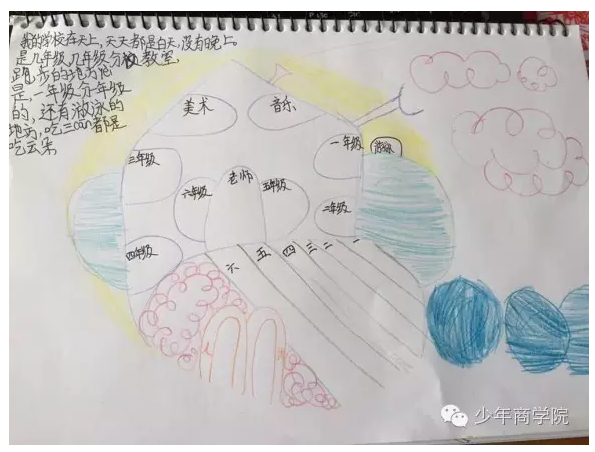 我的学校在天上,天天都是白天,没有晚上。
是几年级,几年级分的教室,
跑步的地方也
是,一年级分年级
的,还有游泳的
地方,吃三can都是
吃云朵
美术
音乐
三年级
一年级
老师
六年级
五年级
二年级
四年级
六 五 四 三 二 一
少年商学院